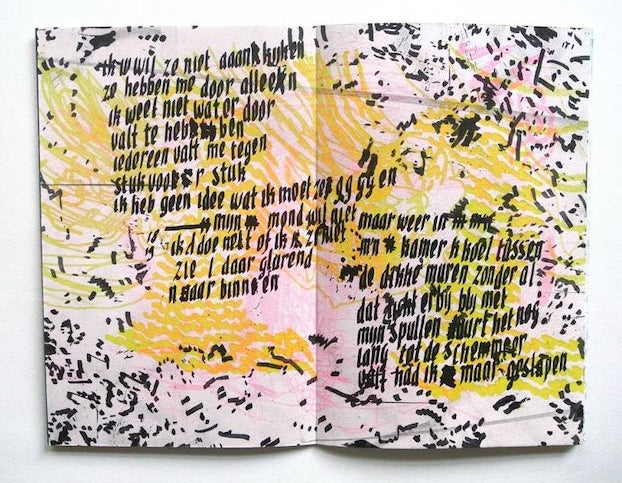 ik w wil ze niet aaank kijken
ze hebben me door alleeen
ik weet niet wat er door
valt te heb ben
iedereen valt me tegen
stuk voor stuk
ik heb geen idee wat ik moet zeggggen
mijn mond wil niet
ik d doe net of ik ze niet
zie l daar glarend
naar binnen
maar weer in
mn kamer k kool tussen
de dikke muren zonder al
dat erbij blij met
mijn spullen duurt het nog
lang tot de schemmeer
had ik maar geslapen